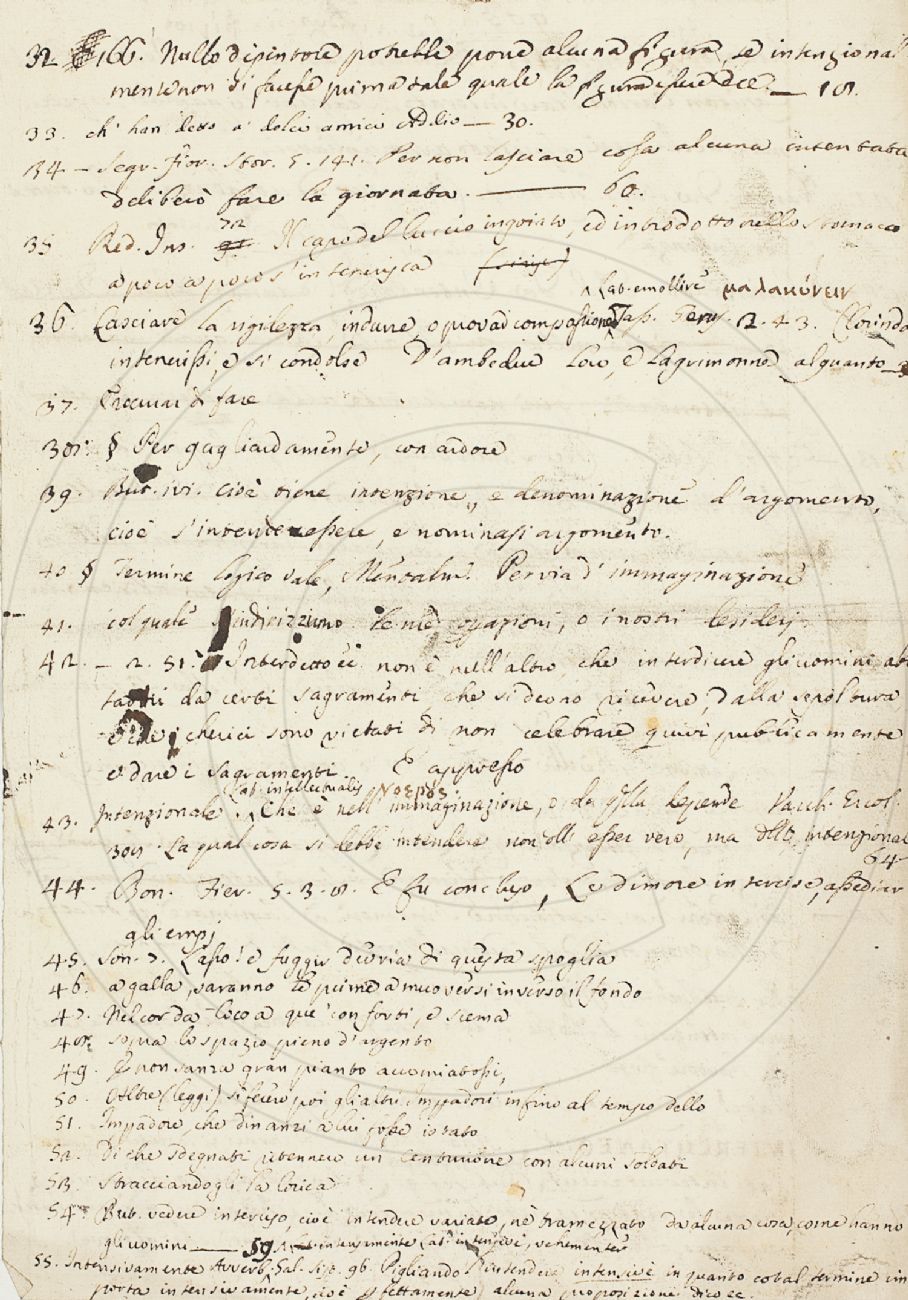 32. 166. Nullo dipintore potrebbe porre alcuna figura, se intenzional
mente non si facesse prima tale quale la figura essere dee. — 18.
33. ch' han detto a' dolci amici Addio — 30.
134 — Segr. Fior. Stor. 5. 141. Per non lasciare cosa alcuna intentata
deliberò fare la giornata. — 60.
35 Red. Ins. 72 Il capo del luccio ingoiato, ed introdotto nello stomaco
a poco a poco s'intenerisca
Lat. emollire μαλακύνειν
36. Lasciare la rigidezza, indurre, o provar compassione Tass. Geru. 2. 43. Clorinda
intenerissi, e si condolse D'ambedue loro, e lagrimonne alquanto
37. Proccurar di fare
38. § Per gagliardamente, con ardore
39. But. ivi. Cioè tiene intenzione, e denominazione d'argomento,
cioè s'intende essere, e nominasi argomento.
40 § Termine logico vale, Mentalm. Per via d'immaginazione
41. col quale s'indirizzano le nre orazioni, o i nostri desiderj.
42. — 2. 51. Interdetto è non è nell'altro, che interdicere gli uomini
da certi sagramenti, che si deono ricevere, dalla sepoltura
cherici sono vietati di non celebrare quivi pubblicamente
e dare i sagramenti. E appresso
Lat. intellectualis Νοερος
43. Intenzionale. Che è nell'immaginazione, o da essa depende Varch. Ercol.
309. La qual cosa si debbe intendere non esser vero, ma intenzional
64
44. Bon. Fier. 5. 3. 8. E fu concluso, Le dimore intercise, assediar
gli empj
45. Son. 7. Lasso! e fuggir devria di questa spoglia
46. a galla, saranno le prime a muoversi inverso il fondo
47. Nel cor da loco a que' conforti, e scema
48. sopra lo spazio pieno d'argento
49. E non sanza gran pianto accomiatossi,
50. Altre (leggi) si fecero poi gli altri Impadori infino al tempo dello
51. Impadore, che dinanzi a lui fosse istato
52. Di che sdegnati ritennero un Centurione con alcuni soldati
53. Stracciandogli la lorica
54. But. vedere interciso, cioè intendere variato, nè tramezzato da alcuna cosa, come hanno
gli uomini — 59 intensamente Lat. intensive, vehementer
55. Intensivamente Avverb. Sal. 96. Pigliando l'intendere intensivè in quanto cotal termine im
porta intensivamente, cioè perfettamente alcuna proposizione dico ec.